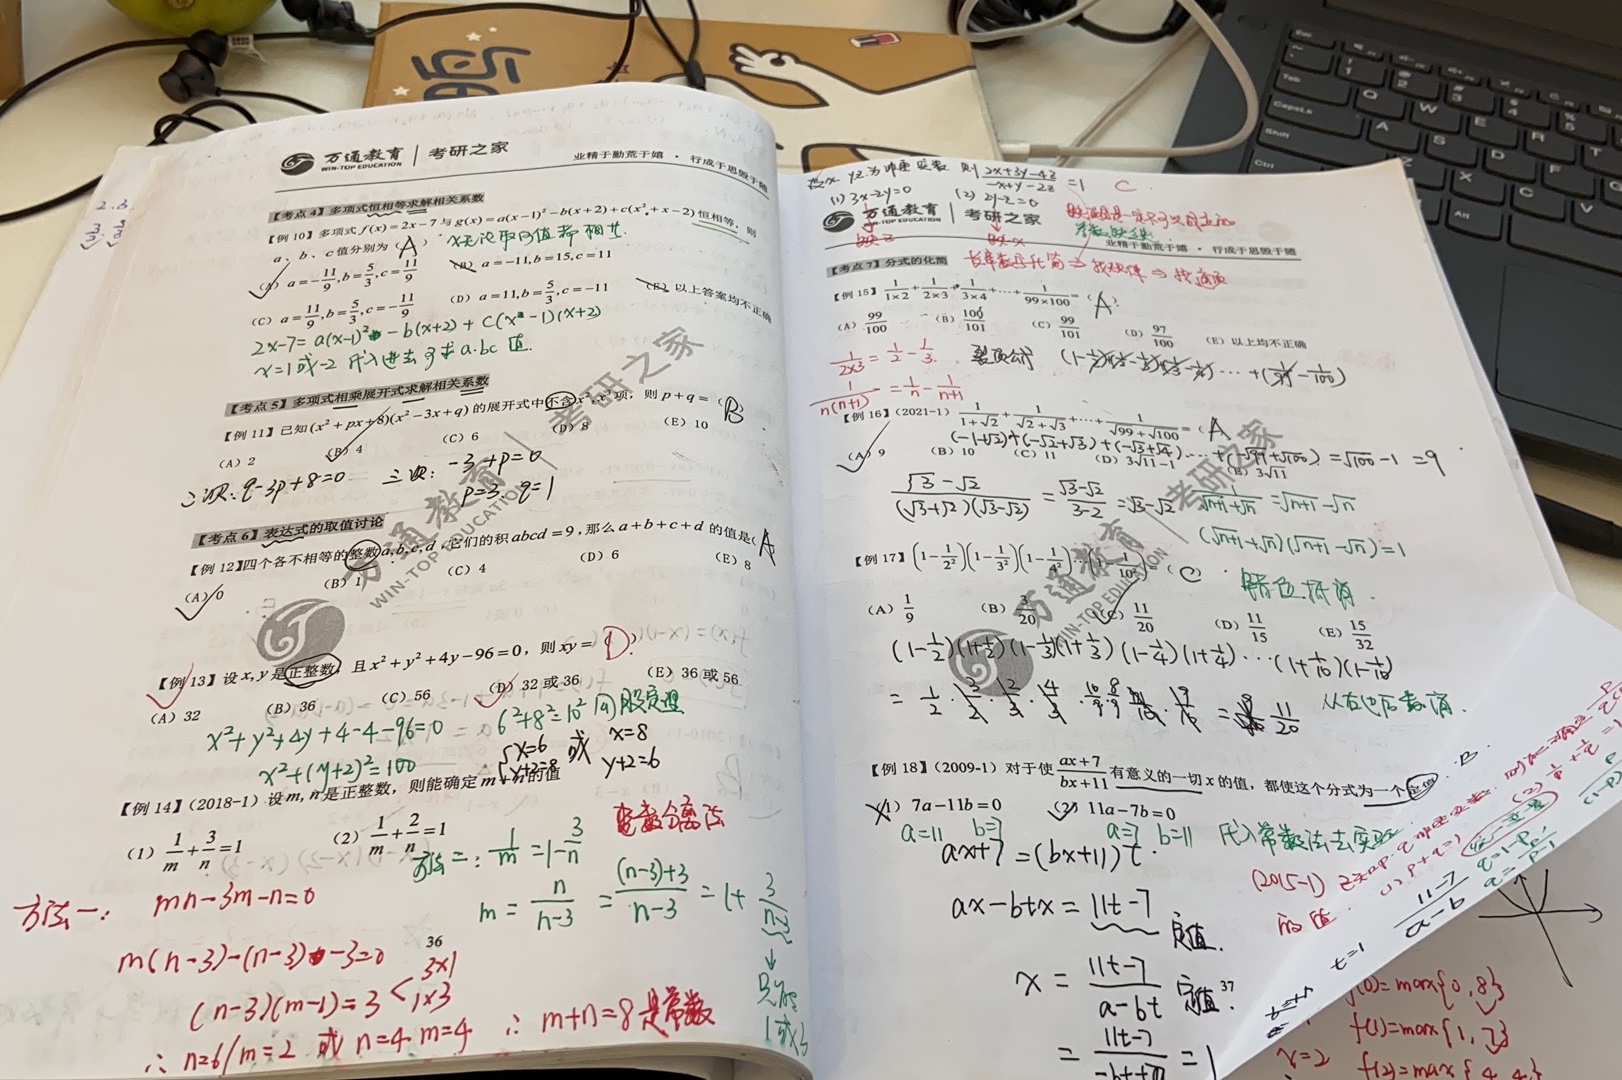 万通教育 | 考研之家
WIN-TOP EDUCATION
业精于勤荒于嬉 · 行成于思毁于随
【考点4】多项式恒相等求解相关系数
【例10】多项式f(x)=2x-7与g(x)=a(x-1)²-b(x+2)+c(x²+x-2)恒相等，则
a、b、c值分别为（A）
x无论取何值都相等.
(A) a=-11/9,b=5/3,c=11/9
(B) a=-11,b=15,c=11
(C) a=11/9,b=5/3,c=-11/9
(D) a=11,b=5/3,c=-11
(E) 以上答案均不正确
2x-7=a(x-1)²-b(x+2)+c(x-1)(x+2)
x=1或-2代入进去寻求a.bc值.
【考点5】多项式相乘展开式求解相关系数
【例11】已知(x²+px+8)(x²-3x+q)的展开式中不含x²,x³项，则p+q=（B）
(A) 2
(B) 4
(C) 6
(D) 8
(E) 10
二次:q-3p+8=0 三次:-3+p=0
p=3 q=1
【考点6】表达式的取值讨论
【例12】四个各不相等的整数a,b,c,d，它们的积abcd=9，那么a+b+c+d的值是(A
(A) 0
(B) 1
(C) 4
(D) 6
(E) 8
【例13】设x,y是正整数，且x²+y²+4y-96=0，则xy=（D）
(A) 32
(B) 36
(C) 56
(D) 32或36
(E) 36或56
x²+y²+4y+4-4-96=0
6²+8²=10² 勾股定理
x²+(y+2)²=100
x=6
y+2=8
或
x=8
y+2=6
【例14】(2018-1)设m,n是正整数，则能确定m+n的值
(1) 1/m+3/n=1
(2) 1/m+2/n=1
方法一:
mn-3m-n=0
m(n-3)-(n-3)-3=0
(n-3)(m-1)=3
3×1
1×3
∴n=6/m=2 或 n=4 m=4
∴m+n=8是常数
方法二: 1/m=1-3/n
m=n/(n-3)=((n-3)+3)/(n-3)=1+3/(n-3)
只能
1或3
36
则 (2x+3y-4z)/(-x+y-2z)=1 C
(1) 3x-2y=0
(2) 2y-z=0
缺z
缺x
万通教育 | 考研之家
WIN-TOP EDUCATION
业精于勤荒于嬉 · 行成于思毁于随
【考点7】分式的化简
长串数字化简⇒找规律⇒找通项
【例15】1/(1×2)+1/(2×3)+1/(3×4)+…+1/(99×100)=（A）
(A) 99/100
(B) 100/101
(C) 99/101
(D) 97/100
(E) 以上均不正确
1/(2×3)=1/2-1/3
裂项公式
1/(n(n+1))=1/n-1/(n+1)
【例16】(2021-1) 1/(1+√2)+1/(√2+√3)+…+1/(√99+√100)=（A
(A) 9
(B) 10
(C) 11
(D) 3√11-1
(E) 3√11
(-1+√2)+(-√2+√3)+(-√3+√4)…+(-√99+√100)=√100-1=9
(√3-√2)/((√3+√2)(√3-√2))=(√3-√2)/(3-2)=√3-√2
1/(√(n+1)+√n)=√(n+1)-√n
(√(n+1)+√n)(√(n+1)-√n)=1
【例17】(1-1/2²)(1-1/3²)(1-1/4²)…(1-1/10²)=（C）
错位抵消.
(A) 1/9
(B) 3/20
(C) 11/20
(D) 11/15
(E) 15/32
(1-1/2)(1+1/2)(1-1/3)(1+1/3)(1-1/4)(1+1/4)…(1+1/10)(1-1/10)
=11/20
【例18】(2009-1)对于使(ax+7)/(bx+11)有意义的一切x的值，都使这个分式为一个定值. B
(1) 7a-11b=0
(2) 11a-7b=0
a=11 b=7
a=7 b=11
代入常数法去实验
ax+7=(bx+11)t
ax-btx=11t-7
定值.
x=(11t-7)/(a-bt)
定值.
37
t=1
(11-7)/(a-b)
(2015-1)
的值.
f(0)=max{0,8}
f(1)=max{1,7}
x=2 f(2)=max{4,4}